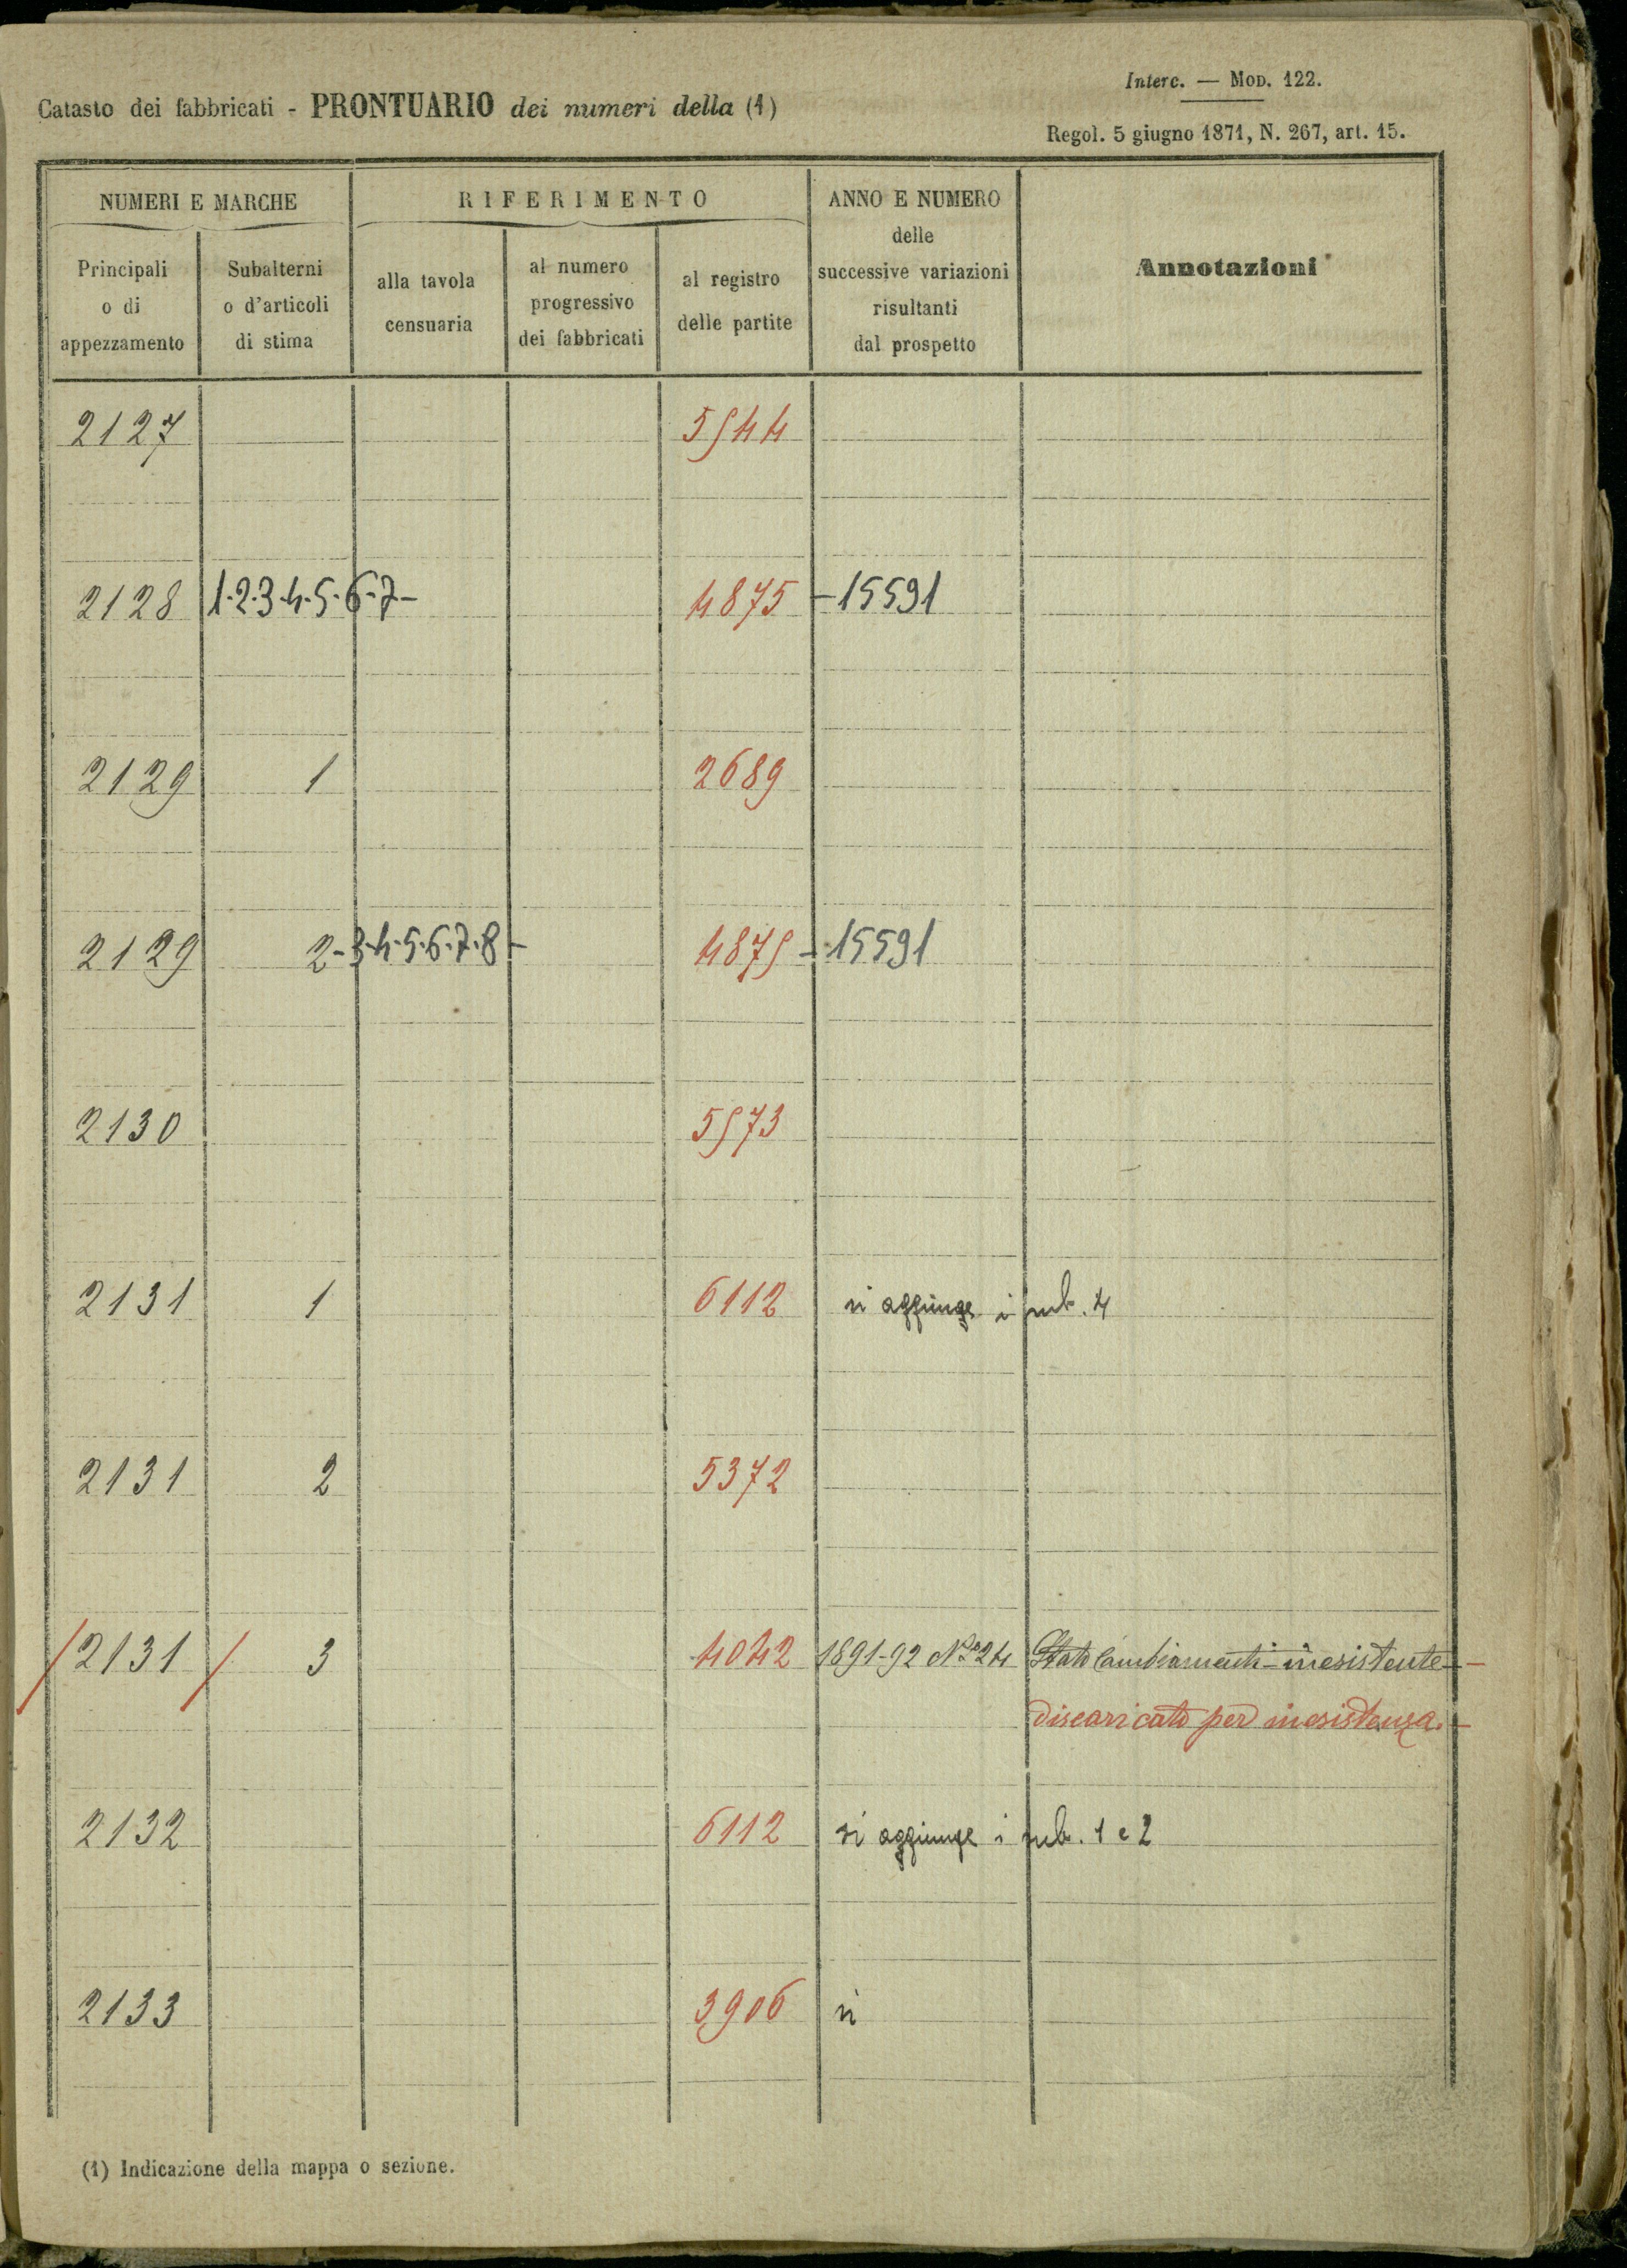 Interc. — MOD. 122.
Catasto dei fabbricati - PRONTUARIO dei numeri della (1)
Regol. 5 giugno 1871, N. 267, art. 15.
NUMERI E MARCHE
RIFERIMENTO
ANNO E NUMERO
delle
successive variazioni
risultanti
dal prospetto
Annotazioni
Principali
o di
appezzamento
Subalterni
o d'articoli
di stima
alla tavola
censuaria
al numero
progressivo
dei fabbricati
al registro
delle partite
2127 5544
2128 1-2-3-4-5-6-7- 4875 -15591
2129 1 2689
2129 2-3-4-5-6-7-8- 4875 -15591
2130 5573
2131 1 6112 si aggiunge i sub. 4
2131 2 5372
/2131 / 3 4042 1891-92 N.° 24 Stato Cambiamenti - inesistente -
discaricato per inesistenza. -
2132 6112 si aggiunge i sub. 1 e 2
2133 3906 si
(1) Indicazione della mappa o sezione.